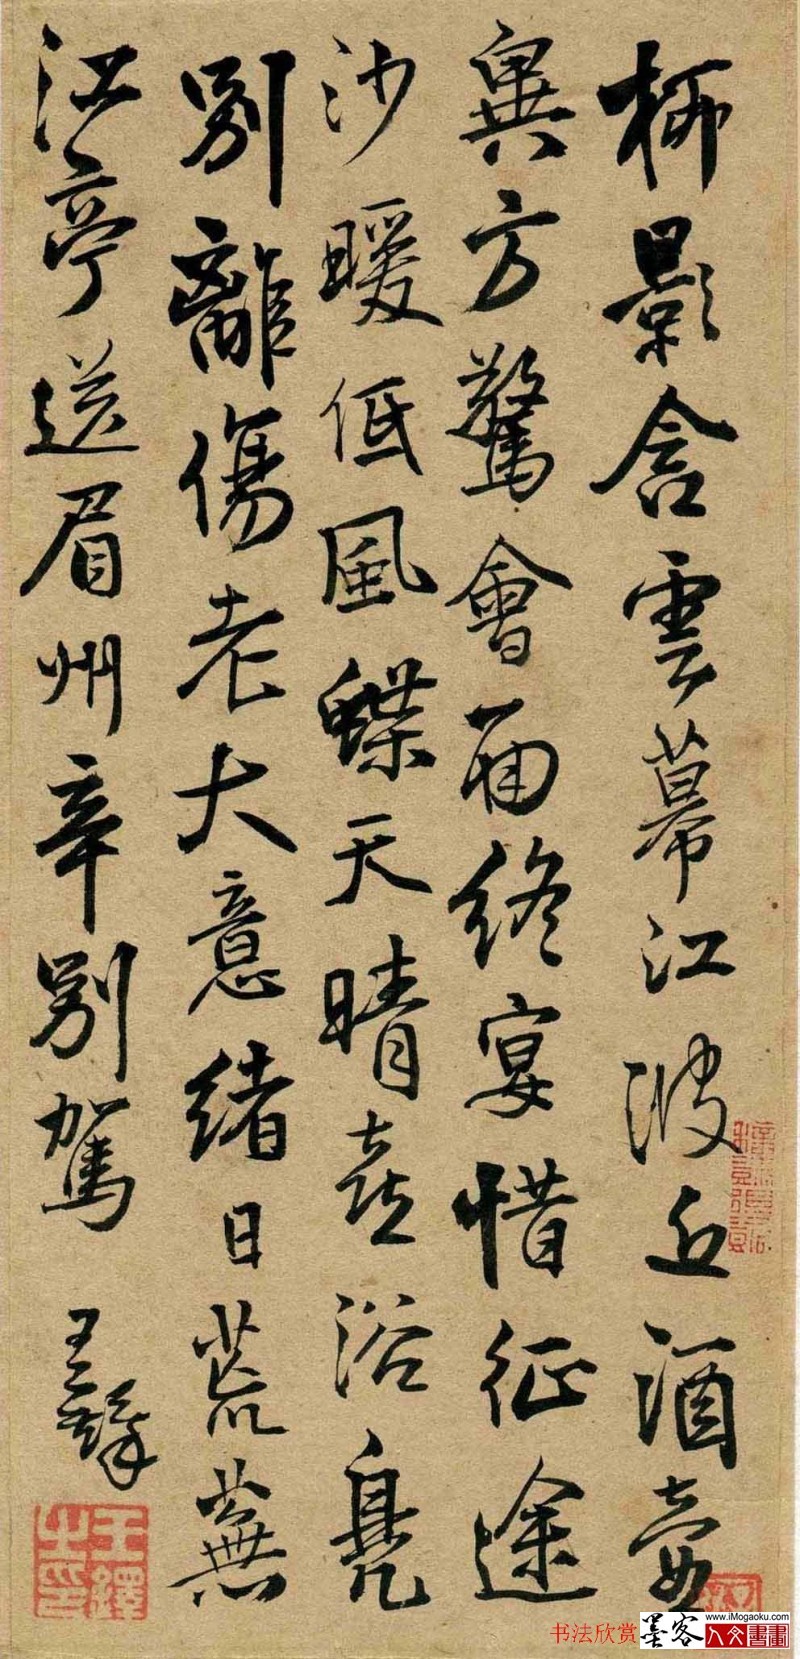 柳影含雲幕江波近酒壺
異方驚會面終宴惜征途
沙暖低風蝶天晴喜浴鳧
別離傷老大意緒日荒蕪
江亭送眉州辛別駕 王鐸
王鐸之印
书法欣赏
墨客
www.iMogaoku.com
人文書畫